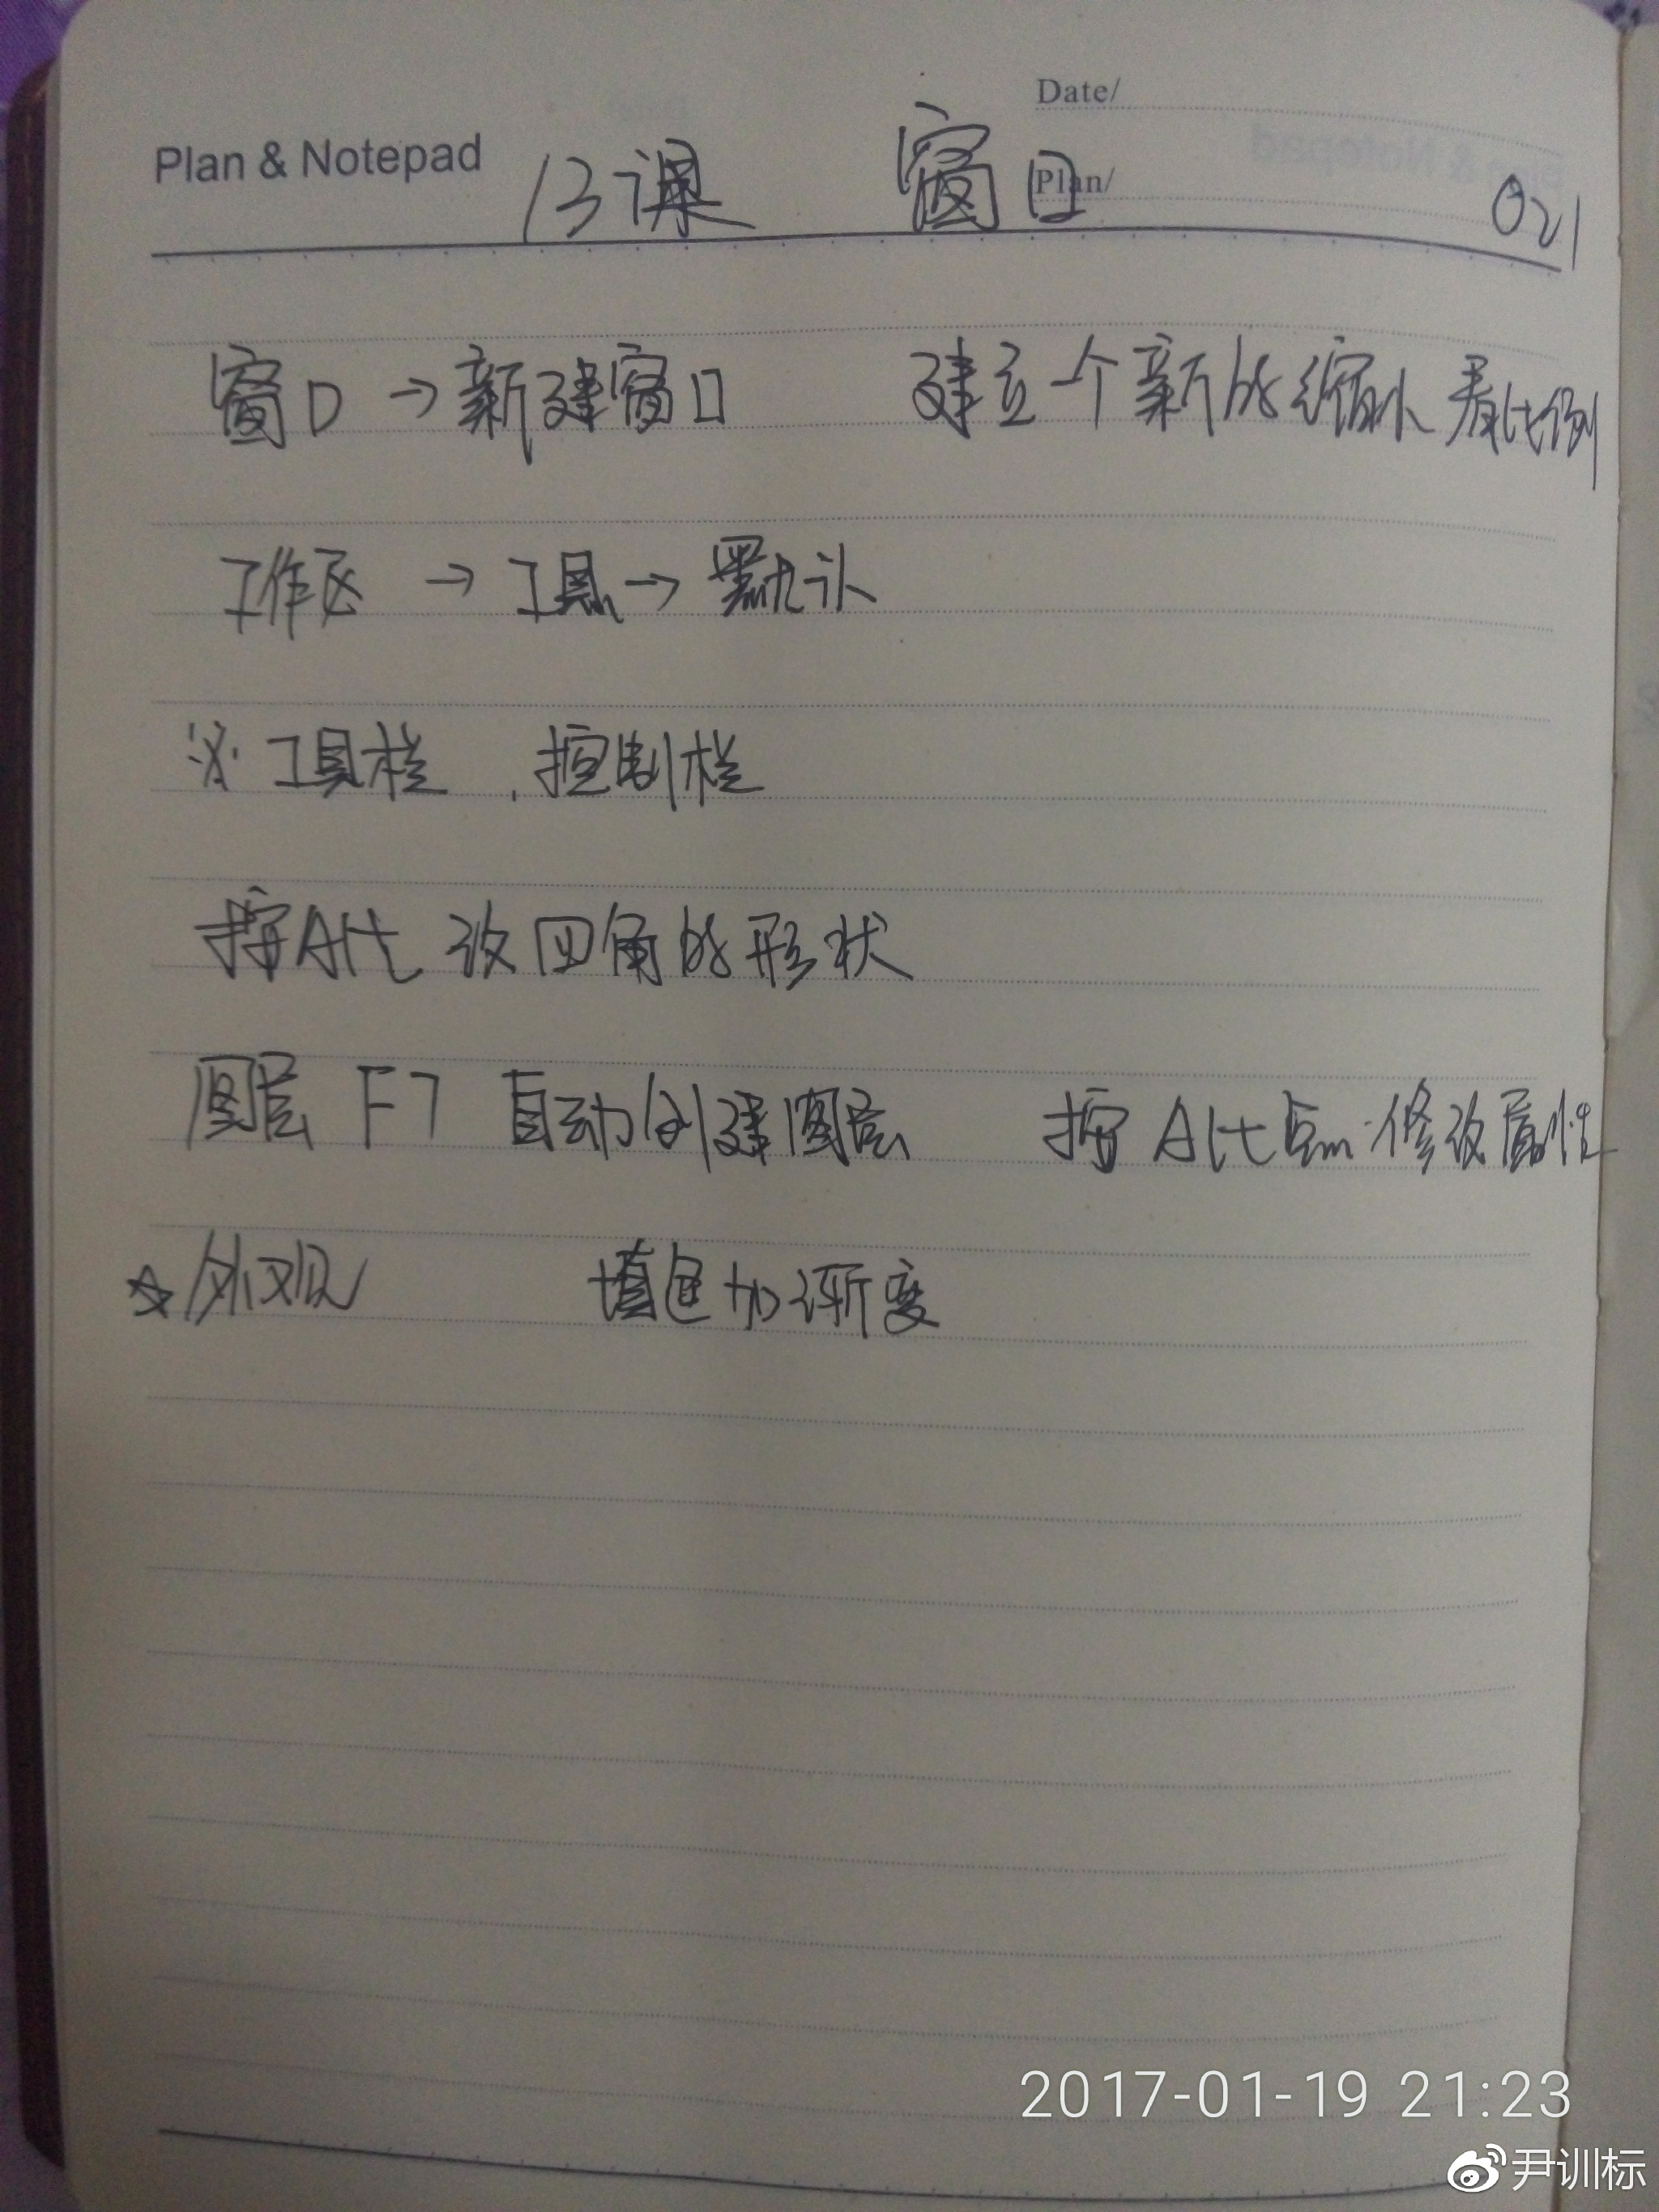 Date/
Plan & Notepad 13课 窗口 Plan/ 021
窗口 → 新建窗口 建立一个新的缩小 看比例
工作区 → 工具 → 默认
※ 工具栏 . 控制栏
按Alt 改四角的形状
图层 F7 自动创建图层 按 Alt 点 修改属性
☆外观 填色加渐变
2017-01-19 21:23
尹训标